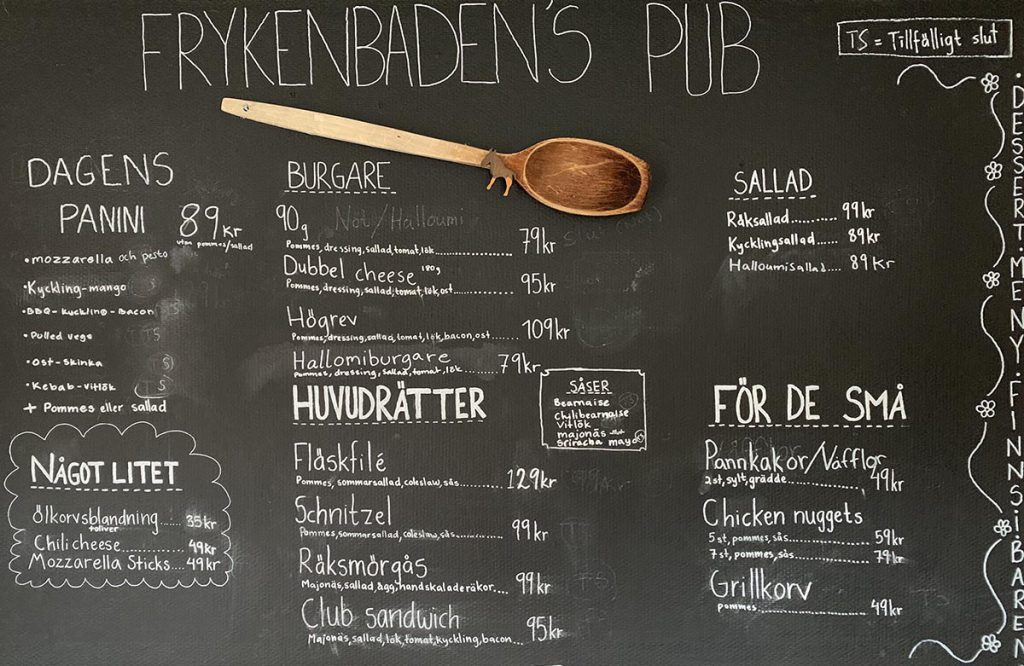 FRYKENBADEN'S PUB
TS = Tillfälligt slut
DAGENS
PANINI 89kr
utan pommes/sallad
• mozzarella och pesto
• Kyckling-mango
• BBQ-kyckling-bacon
• Pulled vege
• Ost-skinka
• Kebab-vitlök TS
+ Pommes eller sallad
NÅGOT LITET
Ölkorvsblandning...... 35kr
+oliver
Chili cheese............ 49kr
Mozzarella Sticks.... 49kr
BURGARE
90g Nöt/Halloumi
Pommes, dressing, sallad, tomat, lök............ 79kr
Dubbel cheese 180g
Pommes, dressing, sallad, tomat, lök, ost............ 95kr
Högrev
Pommes, dressing, sallad, tomat, lök, bacon, ost....... 109kr
Hallomiburgare
Pommes, dressing, sallad, tomat, lök....... 79kr
HUVUDRÄTTER
Fläskfilé
Pommes, sommarsallad, coleslaw, sås........ 129kr
Schnitzel
Pommes, sommarsallad, coleslaw, sås.......... 99kr
Räksmörgås
Majonäs, sallad, ägg, handskaladeräkor.... 99kr
Club sandwich
Majonäs, sallad, lök, tomat, kyckling, bacon... 95kr
SÅSER
Bearnaise
Chilibearnaise
Vitlök
majonäs
Sriracha mayo
SALLAD
Räksallad.......... 99kr
Kycklingsallad..... 89kr
Halloumisallad.... 89kr
FÖR DE SMÅ
Pannkakor/Våfflor
2st, sylt, grädde............ 49kr
Chicken nuggets
5 st, pommes, sås............ 59kr
7 st, pommes, sås............ 79kr
Grillkorv
pommes............ 49kr
• DESSERT • MENY • FINNS I BAREN